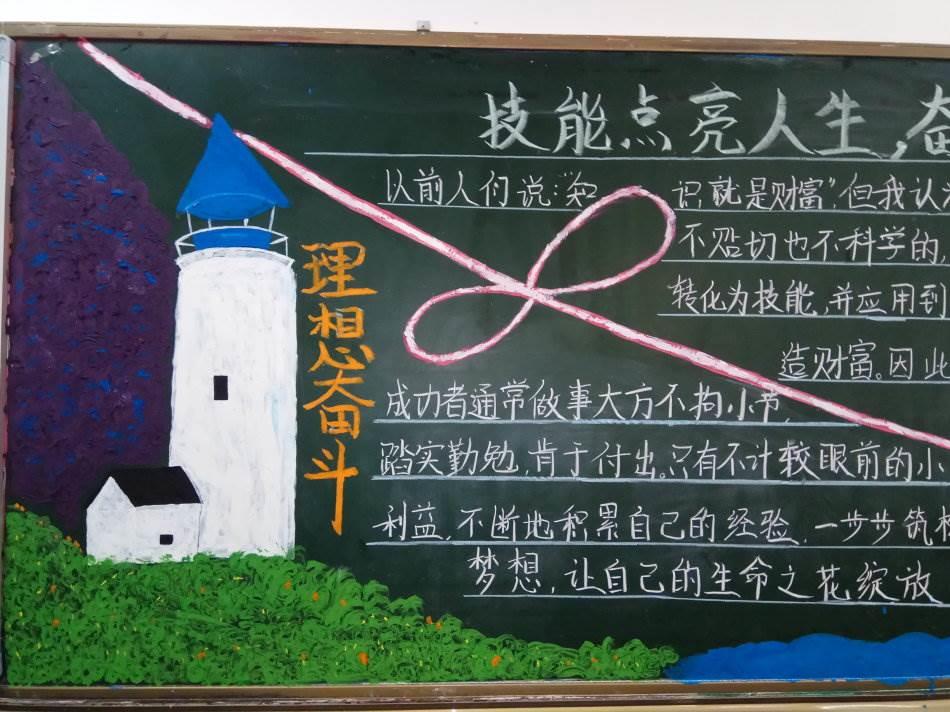 技能点亮人生,奋
理想奋斗
以前人们说:“知识就是财富”,但我认
不贴切也不科学的,
转化为技能,并应用到
造财富。因此
成功者通常做事大方不拘小节,
踏实勤勉,肯于付出。只有不计较眼前的小
利益,不断地积累自己的经验,一步步筑
梦想,让自己的生命之花绽放